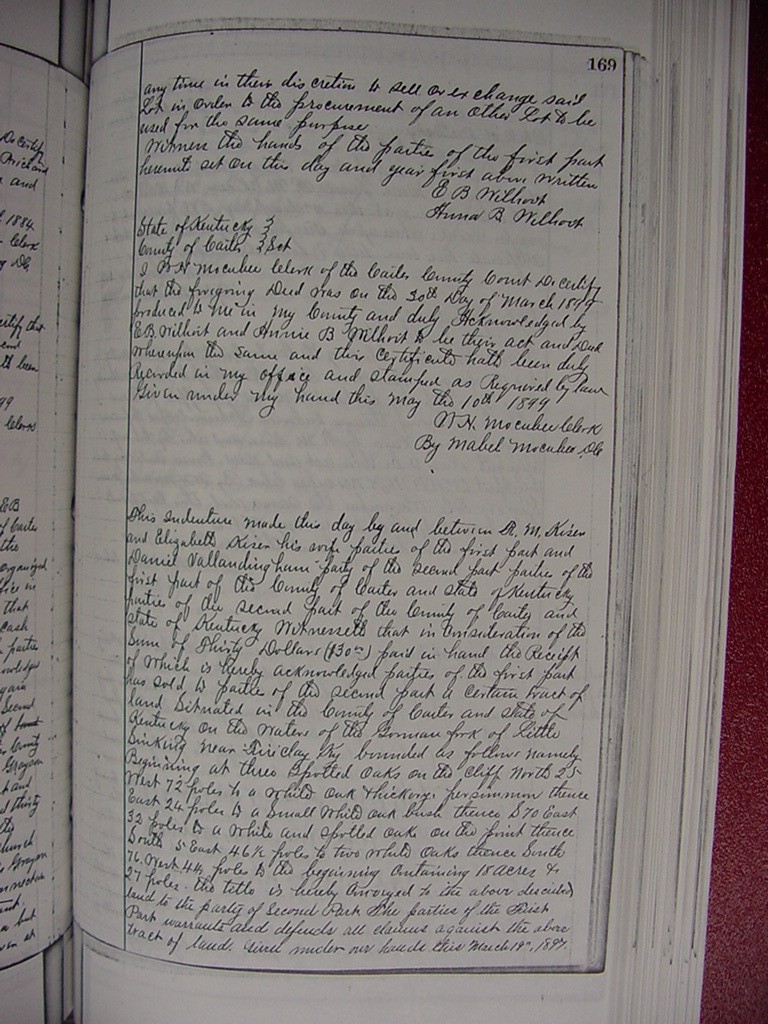 169
any time in their discretion to sell or exchange said
Lot in order to the procurement of an other Lot to be
used for the same purpose
Witness the hands of the parties of the first part
hereunto set on this day and year first above written
E B Wilhoit
Anna B Wilhoit
State of Kentucky }
County of Carter } Sct
I W.H. Mocabee Clerk of the Carter County Court Do certify
that the foregoing Deed was on the 30th Day of March 1899
produced to me in my County and duly Acknowledged by
E.B. Wilhoit and Annie B Wilhoit to be their act and Deed
Whereupon the same and this Certificate hath been duly
Recorded in my office and stamped as Required by Law
Given under my hand this May the 10th 1899
W.H. Mocabee Clerk
By Mabel Mocabee D.C.
This Indenture made this day by and between R. M. Kiser
and Elizabeth Kiser his wife parties of the first part and
Daniel Vallandingham party of the second part parties of the
first part of the County of Carter and State of Kentucky
parties of the second part of the County of Carter and
State of Kentucky Witnesseth that in Consideration of the
sum of Thirty Dollars ($30.00) paid in hand the Receipt
of which is hereby acknowledged parties of the first part
has sold to parties of the second part a certain tract of
land Situated in the County of Carter and State of
Kentucky on the Waters of the Gorman fork of Little
Sinking near Fireclay Ky bounded as follows namely
Beginning at three Spotted Oaks on the Cliff North 25
West 72 poles to a White Oak & hickory persimmon thence
East 24 poles to a Small White oak bush thence S 70 East
32 poles to a White and Spotted Oaks on the point thence
South 5 East 46½ poles to two White Oaks thence South
76 West 44 poles to the beginning Containing 18 acres &
27 poles. the title is hereby Conveyed to the above decided
land to the party of Second Part. The parties of the First
Part warrants and defends all claims against the above
tract of land. Given under our hands this March 19th, 1897.